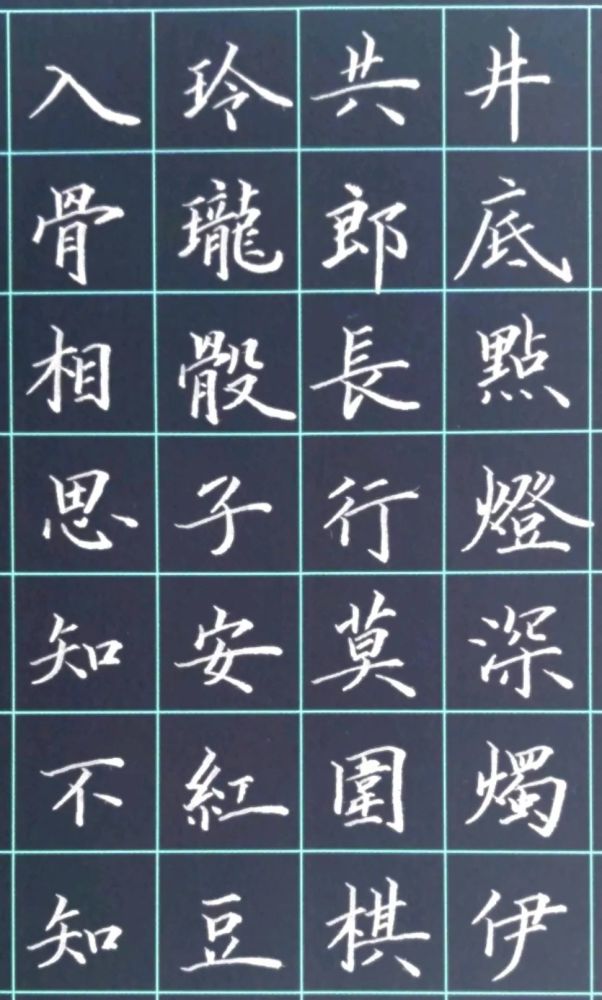 井底點燈深燭伊
共郎長行莫圍棋
玲瓏骰子安紅豆
入骨相思知不知